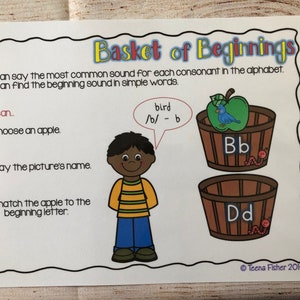 Basket of Beginnings
can say the most common sound for each consonant in the alphabet.
can find the beginning sound in simple words.
an...
bird
/b/ - b
hoose an apple.
Bb
ay the picture's name.
atch the apple to the
beginning letter.
Dd
© Teena Fisher 201